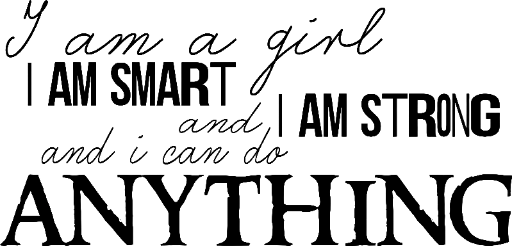 I am a girl
I AM SMART
and I AM STRONG
and i can do
ANYTHING